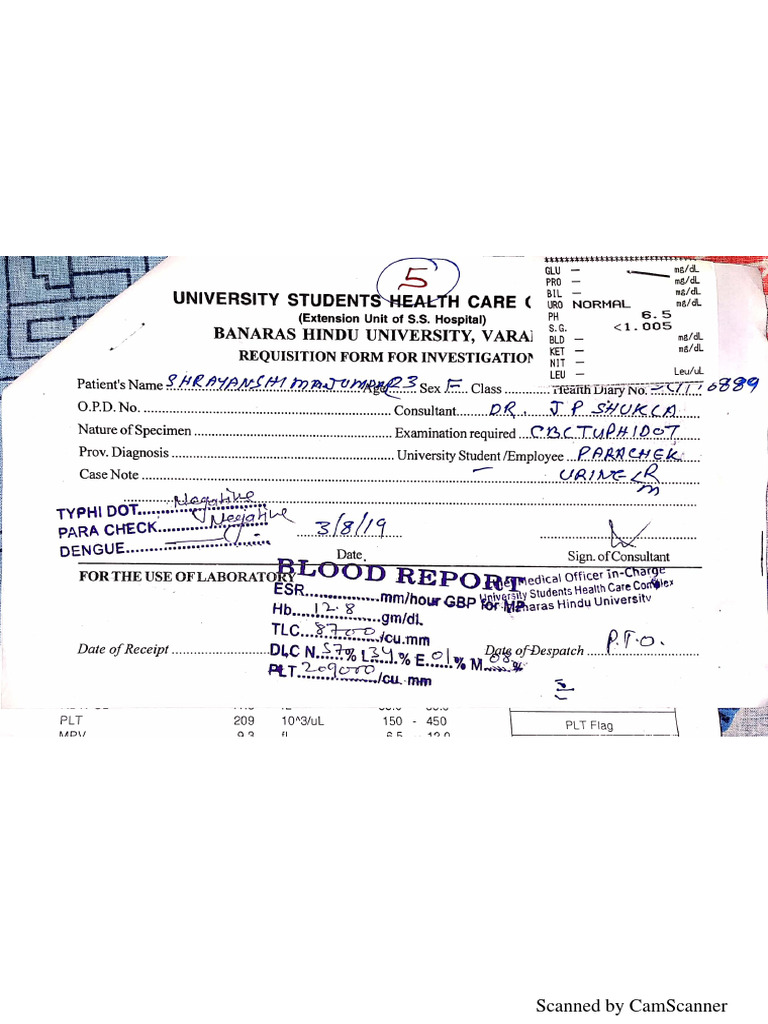 5
UNIVERSITY STUDENTS HEALTH CARE C
(Extension Unit of S.S. Hospital)
BANARAS HINDU UNIVERSITY, VARA
REQUISITION FORM FOR INVESTIGATION
GLU — mg/dL
PRO — mg/dL
BIL — mg/dL
URO NORMAL mg/dL
PH 6.5
S.G. <1.005
BLD — mg/dL
KET — mg/dL
NIT —
LEU — Leu/uL
Patient's Name SHRAYANSHI MAJUMDAR Age 23 Sex F Class Health Diary No.
O.P.D. No. Consultant DR. J P SHUKLA
Nature of Specimen Examination required CBC TYPHIDOT
Prov. Diagnosis University Student /Employee PARACHEK
Case Note — URINE R
m
TYPHI DOT Negative
PARA CHECK Negative
DENGUE
3/8/19
Date. Sign. of Consultant
FOR THE USE OF LABORATORY
BLOOD REPORT
Medical Officer in-Charge
University Students Health Care Complex
Banaras Hindu University
ESR mm/hour GBP for MP
Hb 12.8 gm/dl.
TLC 8700 /cu.mm
Date of Receipt DLC N. 57 % L 34 % E. 01 % M 08 % Date of Despatch P.T.O.
PLT 209000 /cu. mm
PLT 209 10^3/uL 150 - 450 PLT Flag
MPV 9.3 fl 6.5 - 12.0
Scanned by CamScanner